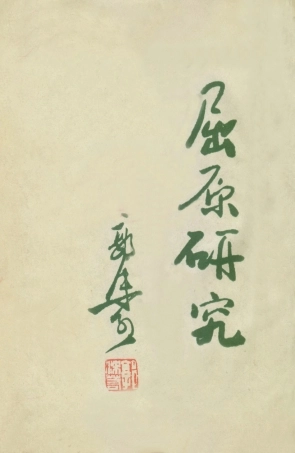 屈原研究
郭沫若